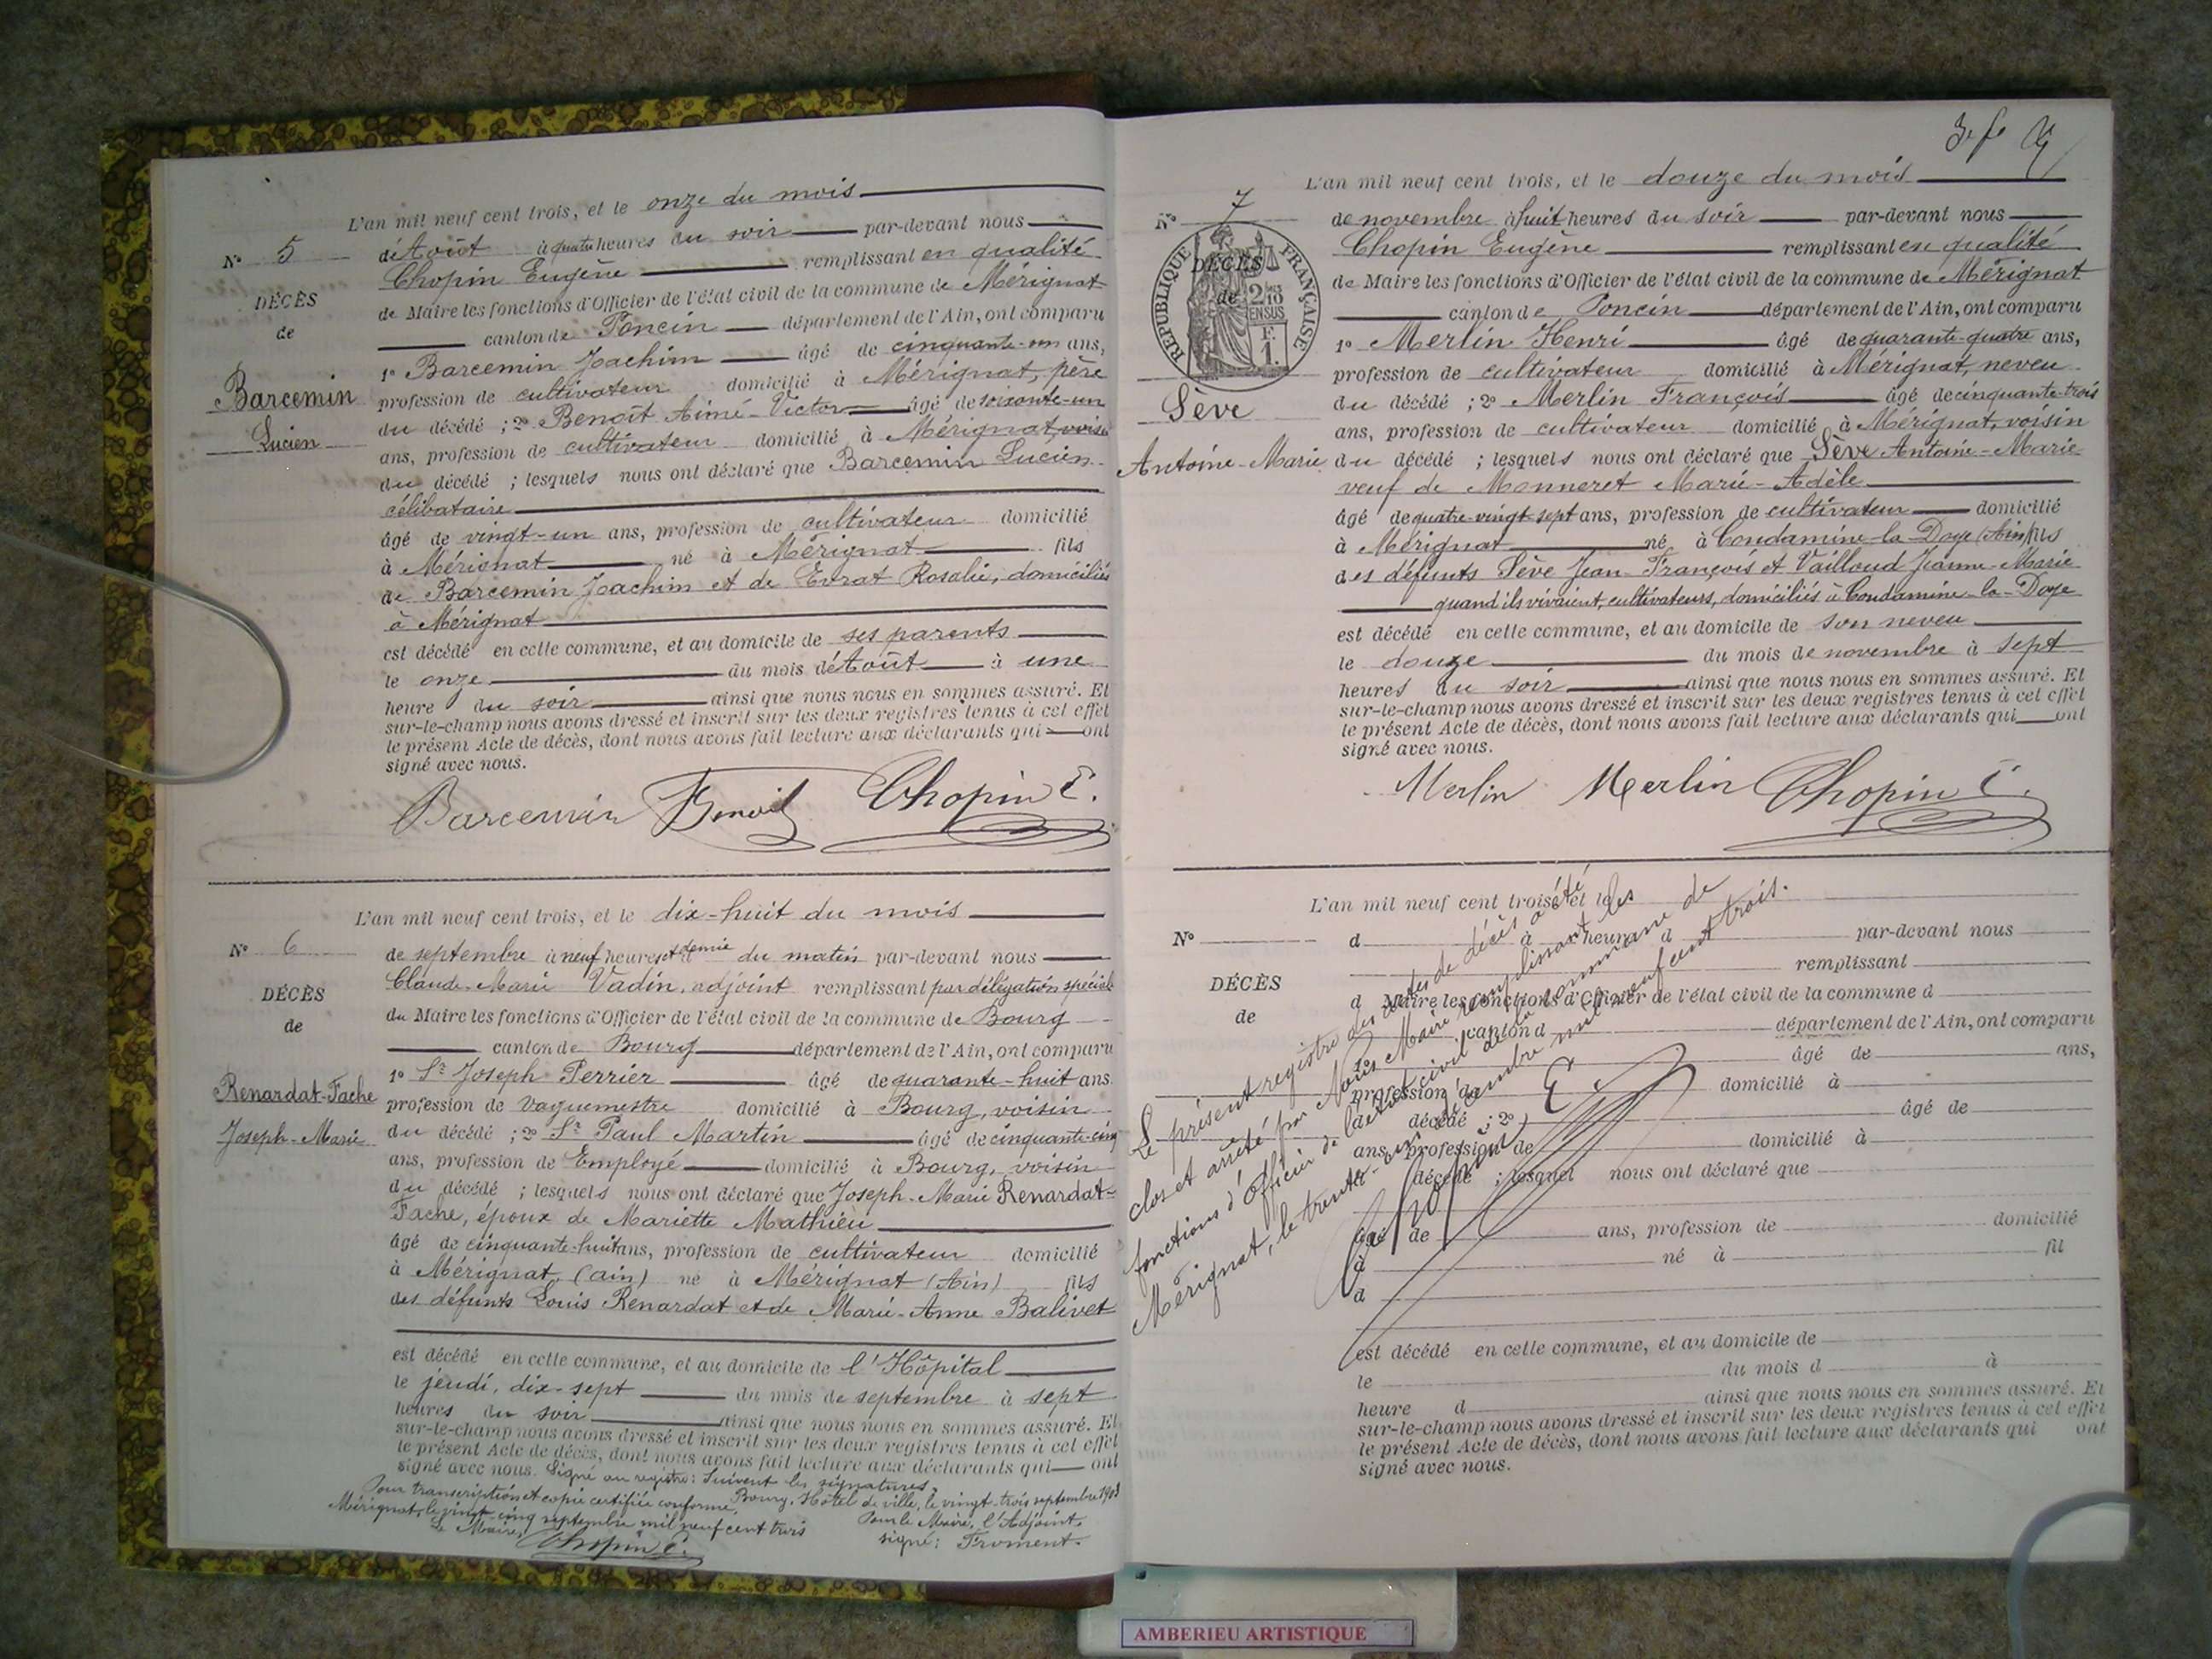 L'an mil neuf cent trois, et le onze du mois
N° 5 d'Août à quatre heures du soir par-devant nous
Chopin Eugène remplissant en qualité
DÉCÈS de Maire les fonctions d'Officier de l'état civil de la commune de Mérignat
de canton de Poncin département de l'Ain, ont comparu
1° Barcemin Joachim âgé de cinquante-un ans,
Barcemin profession de cultivateur domicilié à Mérignat, père
du décédé ; 2° Benoît Aimé-Victor âgé de soixante-un
Lucien ans, profession de cultivateur domicilié à Mérignat, voisin
du décédé ; lesquels nous ont déclaré que Barcemin Lucien
célibataire
âgé de vingt-un ans, profession de cultivateur domicilié
à Mérignat né à Mérignat fils
de Barcemin Joachim et de Evrat Rosalie, domiciliés
à Mérignat
est décédé en cette commune, et au domicile de ses parents
le onze du mois d'Août à une
heure du soir ainsi que nous nous en sommes assuré. Et
sur-le-champ nous avons dressé et inscrit sur les deux registres tenus à cet effet
le présent Acte de décès, dont nous avons fait lecture aux déclarants qui ont
signé avec nous.
Barcemin Benoit Chopin E.
L'an mil neuf cent trois, et le dix-huit du mois
N° 6 de septembre à neuf heures et demie du matin par-devant nous
Claude-Marie Vadin, adjoint remplissant par délégation spéciale
DÉCÈS du Maire les fonctions d'Officier de l'état civil de la commune de Bourg
de canton de Bourg département de l'Ain, ont comparu
1° Sr Joseph Perrier âgé de quarante-huit ans
Renardat-Fache profession de Vaguemestre domicilié à Bourg, voisin
Joseph-Marie du décédé ; 2° Sr Paul Martin âgé de cinquante-cinq
ans, profession de Employé domicilié à Bourg, voisin
du décédé ; lesquels nous ont déclaré que Joseph-Marie Renardat-
Fache, époux de Mariette Mathieu
âgé de cinquante-huit ans, profession de cultivateur domicilié
à Mérignat (ain) né à Mérignat (Ain) fils
des défunts Louis Renardat et de Marie-Anne Balivet
est décédé en cette commune, et au domicile de l'Hôpital
le jeudi, dix-sept du mois de septembre à sept
heures du soir ainsi que nous nous en sommes assuré. Et
sur-le-champ nous avons dressé et inscrit sur les deux registres tenus à cet effet
le présent Acte de décès, dont nous avons fait lecture aux déclarants qui ont
signé avec nous. Signé au registre : Suivent les signatures.
Pour transcription et copie certifiée conforme, Bourg, Hôtel de ville, le vingt-trois septembre 1903
Mérignat, le vingt-cinq septembre mil neuf cent trois Pour le Maire, l'Adjoint,
Le Maire, signé : Froment.
Chopin E.
L'an mil neuf cent trois, et le douze du mois
N° 7 de novembre à huit heures du soir par-devant nous
Chopin Eugène remplissant en qualité
RÉPUBLIQUE FRANÇAISE
2/10 EN SUS
F. 1.
DÉCÈS de Maire les fonctions d'Officier de l'état civil de la commune de Mérignat
de canton de Poncin département de l'Ain, ont comparu
1° Merlin Henri âgé de quarante-quatre ans,
profession de cultivateur domicilié à Mérignat, neveu
Sève du décédé ; 2° Merlin François âgé de cinquante-trois
ans, profession de cultivateur domicilié à Mérignat, voisin
Antoine-Marie du décédé ; lesquels nous ont déclaré que Sève Antoine-Marie
veuf de Monneret Marie-Adèle
âgé de quatre-vingt sept ans, profession de cultivateur domicilié
à Mérignat né à Condamine-la-Doye (Ain) fils
des défunts Sève Jean-François et Vailloud Jeanne-Marie
quand ils vivaient, cultivateurs, domiciliés à Condamine-la-Doye
est décédé en cette commune, et au domicile de son neveu
le douze du mois de novembre à sept
heures du soir ainsi que nous nous en sommes assuré. Et
sur-le-champ nous avons dressé et inscrit sur les deux registres tenus à cet effet
le présent Acte de décès, dont nous avons fait lecture aux déclarants qui ont
signé avec nous.
Merlin Merlin Chopin E.
L'an mil neuf cent trois, et le
N° d à heure d par-devant nous
remplissant
DÉCÈS d Maire les fonctions d'Officier de l'état civil de la commune d
de canton d département de l'Ain, ont comparu
1° âgé de ans,
profession de domicilié à
décédé ; 2° âgé de
ans, profession de domicilié à
décédé ; lesquel nous ont déclaré que
âgé de ans, profession de domicilié
à né à fil
d
est décédé en cette commune, et au domicile de
le du mois d à
heure d ainsi que nous nous en sommes assuré. Et
sur-le-champ nous avons dressé et inscrit sur les deux registres tenus à cet effet
le présent Acte de décès, dont nous avons fait lecture aux déclarants qui ont
signé avec nous.
Le présent registre des actes de décès a été
clos et arrêté par Nous Maire remplissant les
fonctions d'officier de l'état civil de la commune de
Mérignat, le trente-un décembre mil neuf cent trois.
Chopin E
AMBERIEU ARTISTIQUE